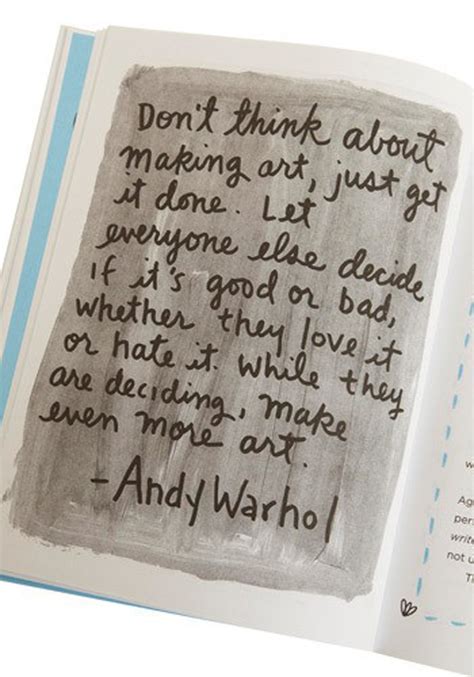 Don't think about
making art, just get
it done. Let
everyone else decide
if it's good or bad,
whether they love it
or hate it. While they
are deciding, make
even more art.
- Andy Warhol
w
Ag
per
write
not u
Ti